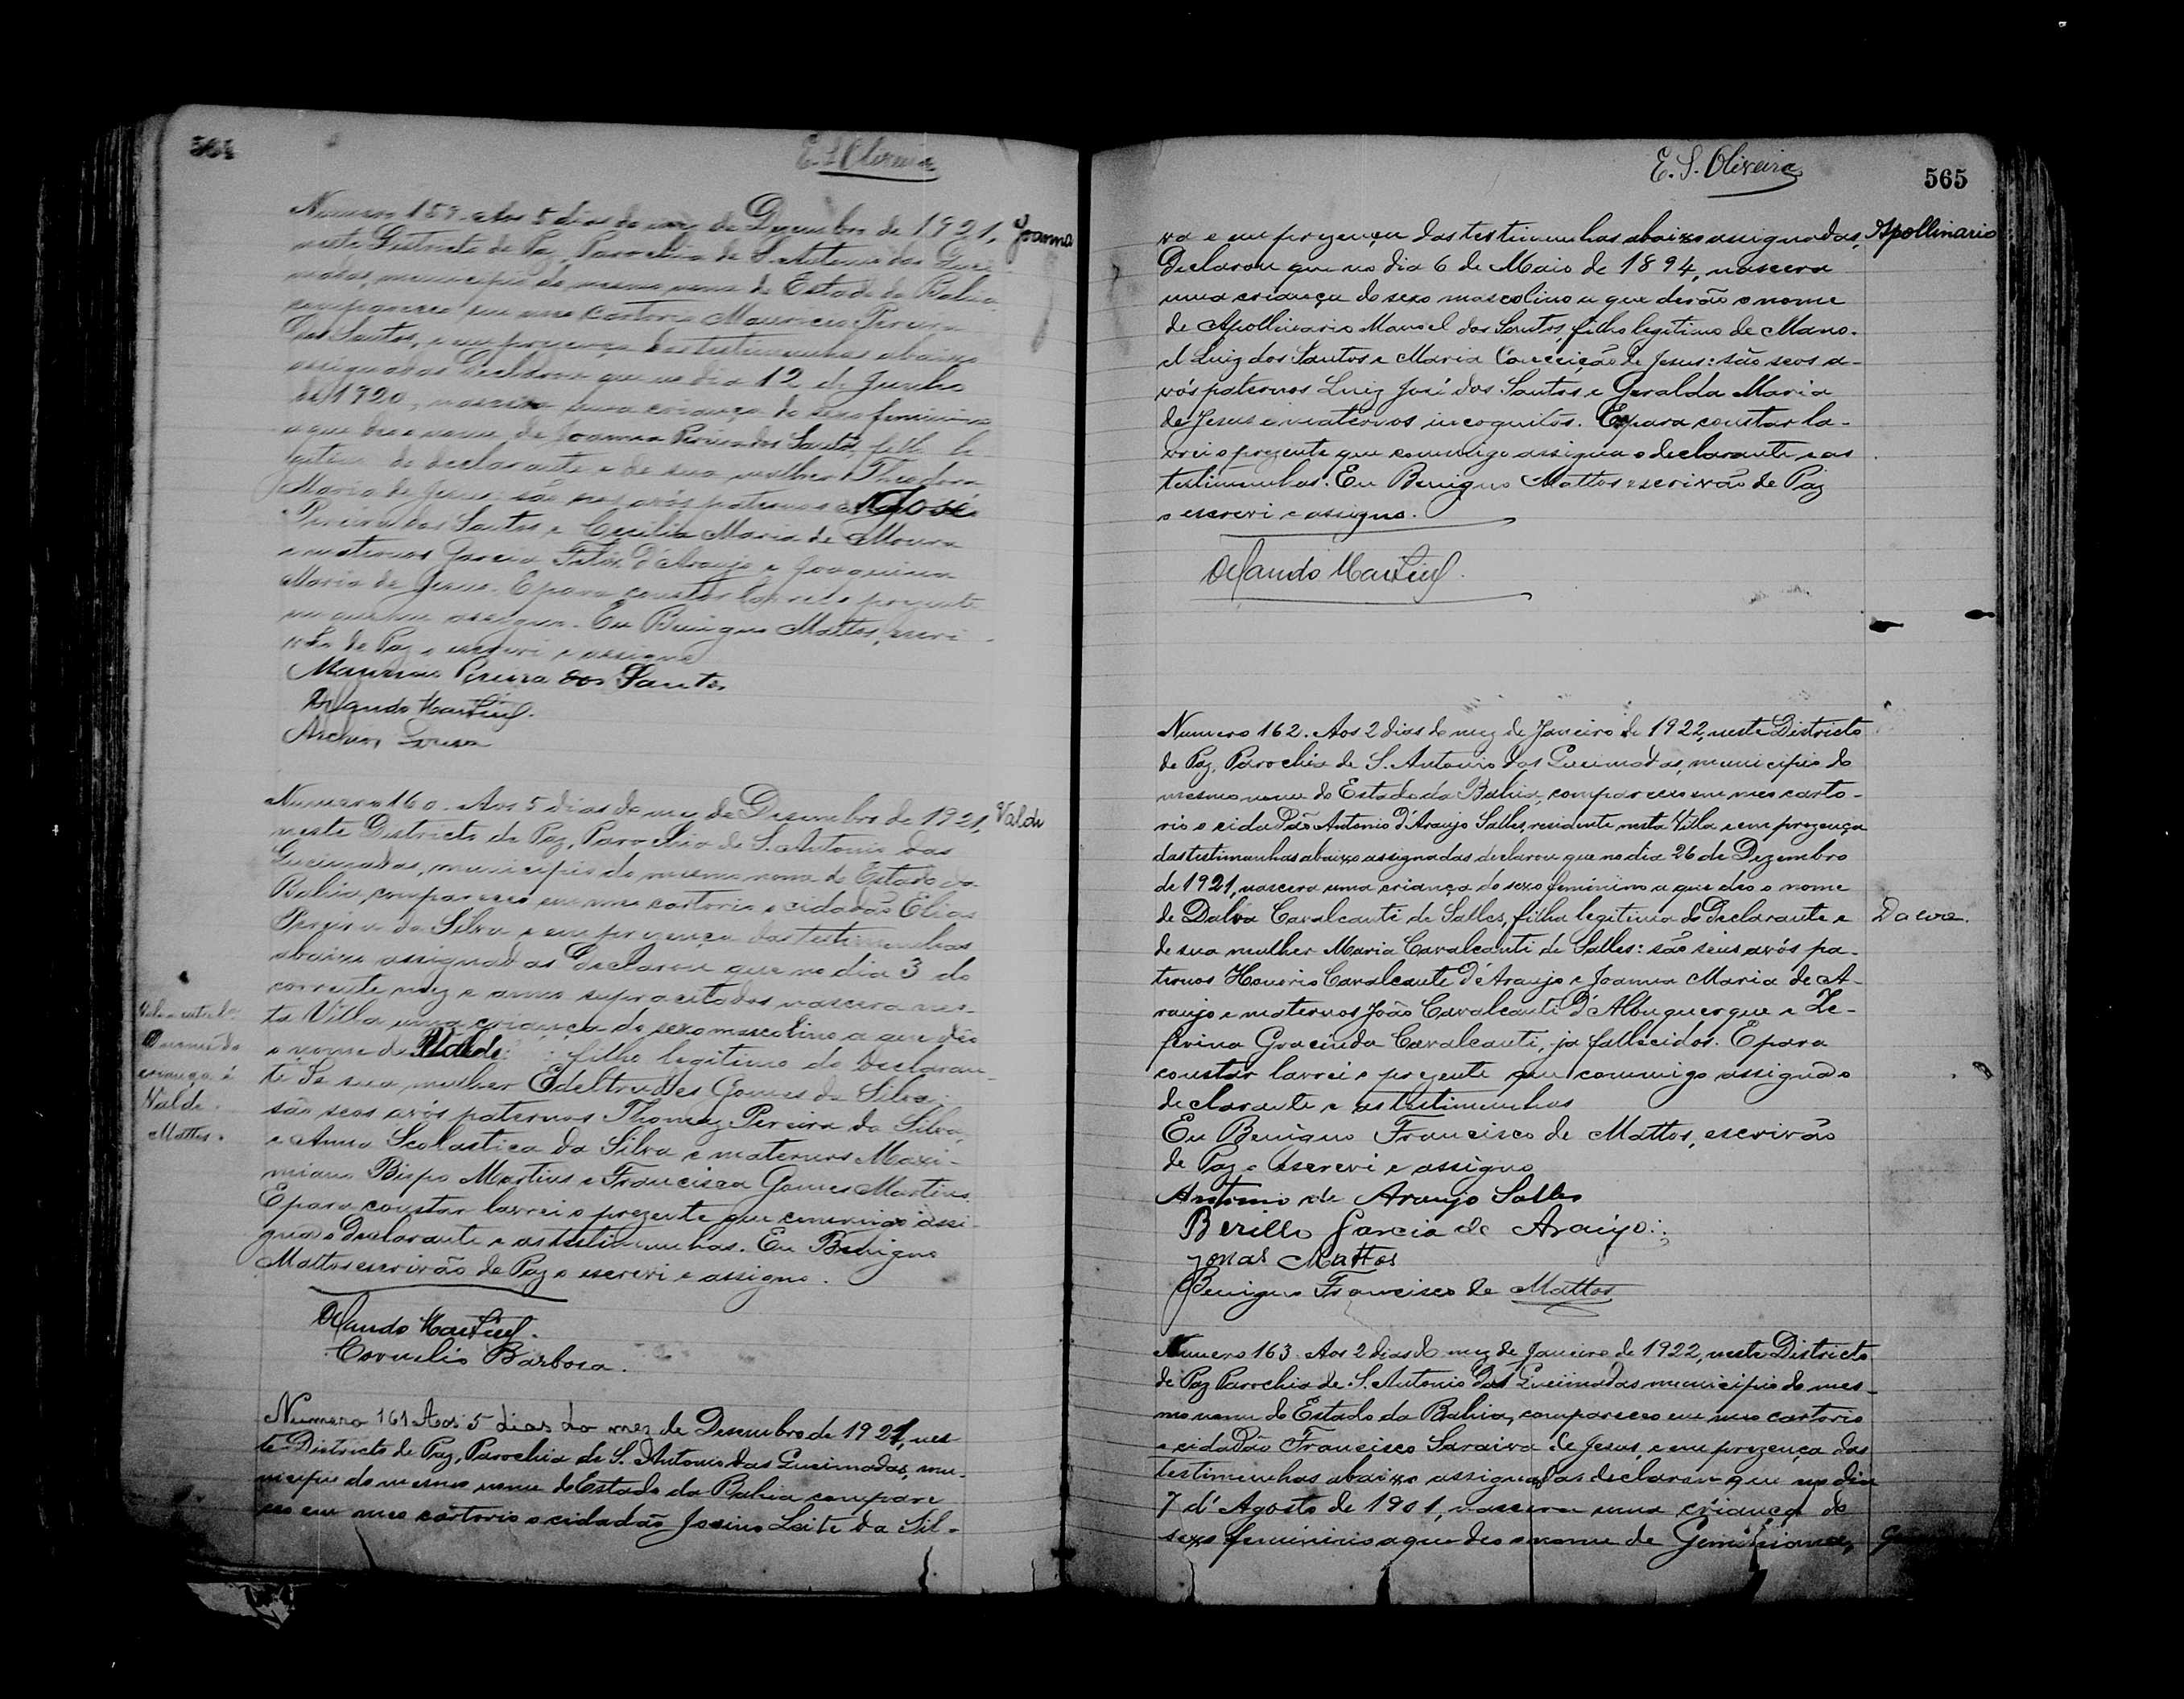 564
E. S. Oliveira
Numero 159. Aos 5 dias do mez de Dezembro de 1921, Joanna
neste Districto de Paz, Parochia de S. Antonio das Quei-
madas, municipio do mesmo nome do Estado da Bahia
compareceo em meo Cartorio Mauricio Pereira
dos Santos, e em prezença das testimunhas abaixo
assignadas declarou que no dia 12 de Junho
de 1920, nascera uma criança do sexo feminino
a que deo o nome de Joanna Pereira dos Santos, filha le
gitima do declarante e de sua mulher Theodora
Maria de Jesus: são seos avós paternos José
Pereira dos Santos e Cecilia Maria de Moura
e maternos Garcia D'Araujo e Joaquina
Maria de Jesus. E para constar lavrei o prezente
assigna. Eu Benigno Mattos, escri-
vão de Paz o escrevi e assigno
Mauricio Pereira dos Santos
Numero 160. Aos 5 dias do mez de Desembro de 1921, Valde
neste Districto de Paz, Parochia de S. Antonio das
Queimadas, municipio do mesmo nome do Estado da
Bahia, compareceo em meo cartorio o cidadão Elias
Pereira da Silva e em prezença das testimunhas
abaixo assignadas declarou que no dia 3 do
corrente mez e anno supracitados nascera nes-
ta Villa uma criança do sexo mascolino a que deo
o nome de Valde: filho legitimo do declaran-
te e de sua mulher Edeltrudes Gomes da Silva;
são seos avós paternos Thomaz Pereira da Silva,
e Anna Scolastica da Silva e maternos Maxi-
miano Bispo Martins e Francisca Gomes Martins
E para constar lavrei o prezente que commigo assi-
gna o declarante e as testimunhas. Eu Benigno
Mattos escrivão de Paz o escrevi e assigno.
O nome da
criança é
Valde.
Mattos.
Cornelio Barbosa.
Numero 161 Aos 5 dias do mez de Desembro de 1921, nes-
te Districto de Paz, Parochia de S. Antonio das Queimadas, mu-
nicipio do mesmo nome do Estado da Bahia compare
ceo em meo cartorio o cidadão Josino Leite da Sil-
E. S. Oliveira
565
va e em prezença das testimunhas abaixo assignadas, Apollinario
Declarou que no dia 6 de Maio de 1894, nascera
uma criança do sexo mascolino a que derão o nome
de Apollinario Manoel dos Santos, filho legitimo de Mano-
el Luiz dos Santos e Maria Conceição de Jesus: são seos a-
vós paternos Luiz José dos Santos e Geralda Maria
de Jesus e maternos incognitos. E para constar la-
vrei o prezente que commigo assigna o declarante e as
testimunhas. Eu Benigno Mattos escrivão de Paz
o escrevi e assigno.
Numero 162. Aos 2 dias do mez de Janeiro de 1922, neste Districto
de Paz, Parochia de S. Antonio das Queimadas, municipio do
mesmo nome do Estado da Bahia, compareceu em meo carto-
rio o cidadão Antonio D'Araujo Salles, residente nesta Villa e em prezença
das testimunhas abaixo assignadas declarou que no dia 26 de Dezembro
de 1921, nascera uma criança do sexo feminino a que deo o nome
de Dalva Cavalcanti de Salles, filha legitima do Declarante e
de sua mulher Maria Cavalcanti de Salles: são seus avós pa-
ternos Honorio Cavalcante d'Araujo e Joanna Maria de A-
raujo e maternos João Cavalcanti d'Albuquerque e Ze-
ferina Gracinda Cavalcanti, ja fallecidos. E para
constar lavrei o prezente que commigo assigna o
declarante e as testimunhas
Eu Benigno Francisco de Mattos, escrivão
de Paz o escrevi e assigno
Antonio de Araujo Salles
Berillo Garcia de Araújo
Jonas Mattos
Benigno Francisco de Mattos
Numero 163 Aos 2 dias do mez de Janeiro de 1922, neste Districto
de Paz Parochia de S. Antonio das Queimadas municipio do mes-
mo nome do Estado da Bahia, compareceo em meo cartorio
o cidadão Francisco Saraiva de Jesus, e em prezença das
testimunhas abaixo assignadas declarou que no dia
7 d'Agosto de 1901, nascera uma criança do
sexo feminino a que deo o nome de